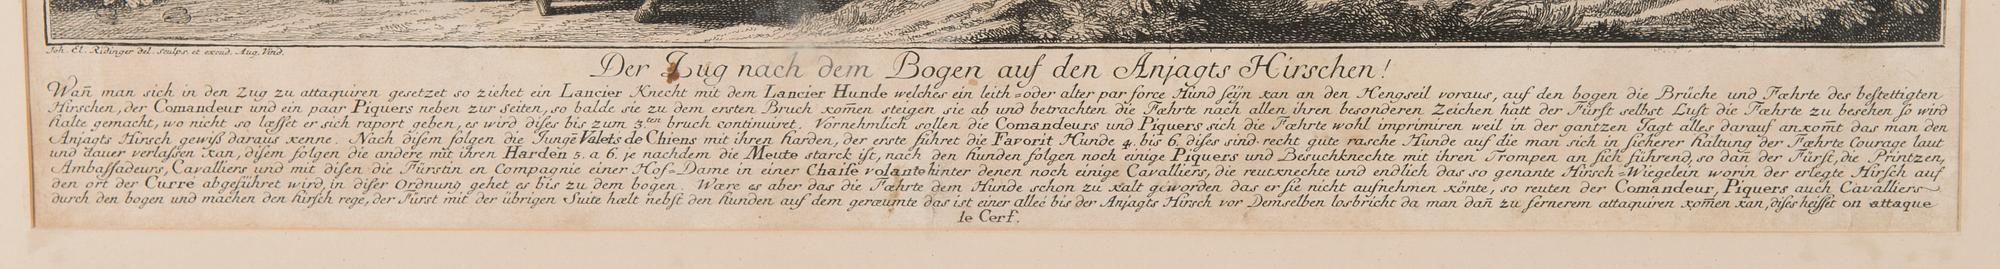 Joh. El. Ridinger del. sculps. et excud. Aug. Vind.
Der Zug nach dem Bogen auf den Anjagts Hirschen!
Wañ man sich in den Zug zu attaquiren gesetzet so ziehet ein Lancier Knecht mit dem Lancier Hunde welches ein leith=oder alter par force Hund seÿn kan an den Hengseil voraus, auf den bogen die Brüche und Fæhrte des bestettigten
Hirschen, der Comandeur und ein paar Piquers neben zur seiten, so balde sie zu dem ersten Bruch kom̄en steigen sie ab und betrachten die Fæhrte nach allen ihren besonderen Zeichen hatt der Fürst selbst Lust die Fæhrte zu besehen so wird
halte gemacht, wo nicht so læsset er sich raport geben, es wird dises bis zum 3ten bruch continuiret. Vornehmlich sollen die Comandeurs und Piquers sich die Fæhrte wohl imprimiren weil in der gantzen Jagt alles darauf ankomt das man den
Anjagts Hirsch gewiß daraus kenne. Nach disem folgen die Jungē Valets de Chiens mit ihren harden, der erste führet die Favorit Hunde 4. bis 6, dises sind recht gute rasche Hunde auf die man sich in sicherer haltung der Fæhrte Courage laut
und dauer verlassen kan, disem folgen die andere mit ihren Harden 5. a 6. je nachdem die Meute starck ist, nach den hunden folgen noch einige Piquers und Besuchknechte mit ihren Trompen an sich führend, so dañ der Fürst, die Printzen,
Ambassadeurs, Cavalliers und mit disen die Fürstin en Compagnie einer Hof=Dame in einer Chaise volante hinter denen noch einige Cavalliers, die reutknechte und endlich das so genante Hirsch=Wiegelein worin der erlegte Hirsch auf
den ort der Curre abgeführet wird, in diser ordnung gehet es bis zu dem bogen. Wære es aber das die Fæhrte dem Hunde schon zu kalt geworden das er sie nicht aufnehmen könte, so reuten der Comandeur, Piquers auch Cavalliers
durch den bogen und machen den hirsch rege, der Fürst mit der übrigen Suite hælt nebst den hunden auf dem geræumte das ist einer alleé bis der Anjagts Hirsch vor Demselben losbricht da man dañ zu fernerem attaquiren kom̄en kan, dises heisset on attaque
le Cerf.